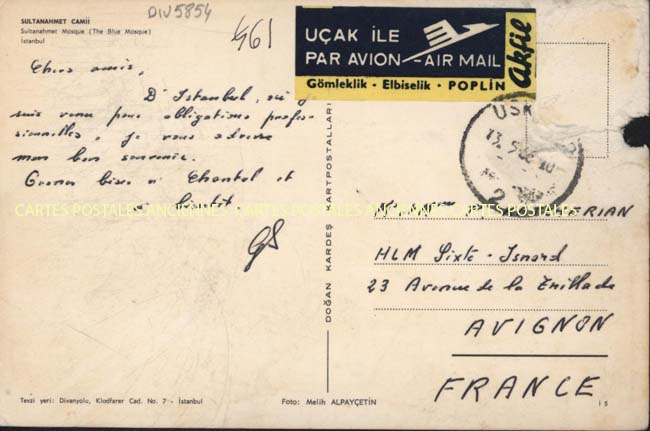 SULTANAHMET CAMİİ
Sultanahmet Mosque (The Blue Mosque)
İstanbul
DIV5854
461
UÇAK İLE
PAR AVION - AIR MAIL
Gömleklik · Elbiselik · POPLİN
Akfil
Chers amis,
D'Istanbul, où je
suis venu pour obligations profes-
sionnelles, je vous adresse
mon bon souvenir.
Grosses bises à Chantal et
à bientôt.
GS
CARTES POSTALES ANCIENNES CARTES POSTALES ANCIENNES
DOĞAN KARDEŞ KARTPOSTALLARI
USK
13.5
HLM Sixte - Isnard
23 Avenue de la Trillade
AVIGNON
FRANCE
Tevzi yeri: Divanyolu, Klodfarer Cad. No. 7 - İstanbul
Foto: Melih ALPAYÇETİN
15